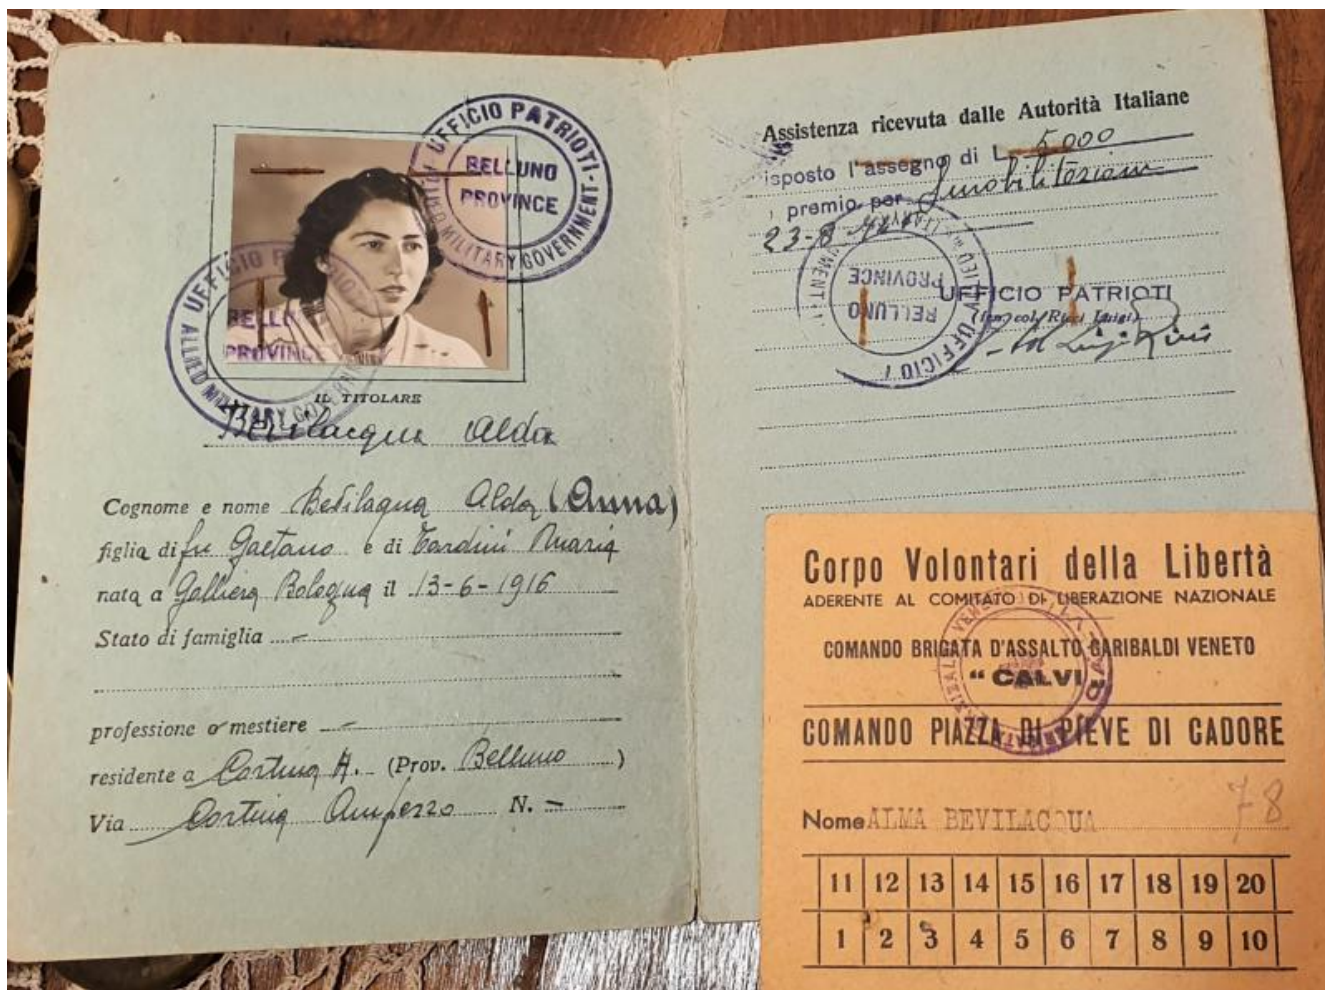 UFFICIO PATRIOTI - ALLIED MILITARY GOVERNMENT
BELLUNO
PROVINCE
UFFICIO
ALLIED MILITARY
PROVINCE
IL TITOLARE
Bevilacqua Alda
Cognome e nome Bevilaqua Alda (Anna)
figlia di fu Gaetano e di Tardini Maria
nata a Galliera Bologna il 13-6-1916
Stato di famiglia
professione o mestiere
residente a Cortina A. (Prov. Belluno)
Via Cortina Ampezzo N. -
Assistenza ricevuta dalle Autorità Italiane
isposto l'assegno di L. 5.000
premio per Smobilitazione
23-8
BELLUNO
PROVINCE
UFFICIO
UFFICIO PATRIOTI
(ten. col. Ricci Luigi)
Luigi Ricci
Corpo Volontari della Libertà
ADERENTE AL COMITATO DI LIBERAZIONE NAZIONALE
COMANDO BRIGATA D'ASSALTO GARIBALDI VENETO
“CALVI„
COMANDO PIAZZA DI PIEVE DI CADORE
78
Nome ALMA BEVILACQUA
11 12 13 14 15 16 17 18 19 20
1 2 3 4 5 6 7 8 9 10